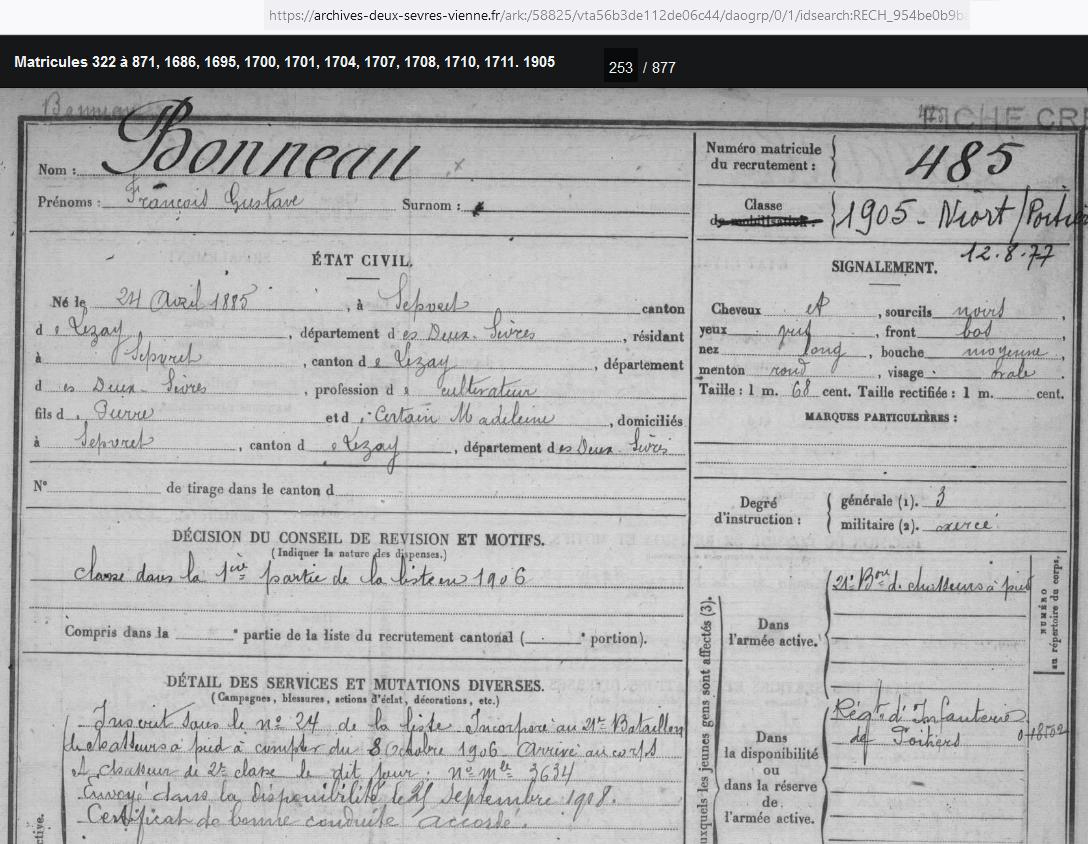 https://archives-deux-sevres-vienne.fr/ark:/58825/vta56b3de112de06c44/daogrp/0/1/idsearch:RECH_954be0b9b
Matricules 322 à 871, 1686, 1695, 1700, 1701, 1704, 1707, 1708, 1710, 1711. 1905
253 / 877
FICHE CR
Nom : Bonneau
Prénoms : François Gustave Surnom :
Numéro matricule du recrutement : 485
Classe de mobilisation : 1905 - Niort / Poitie
12.8.77
ÉTAT CIVIL.
Né le 24 Avril 1885, à Sepvret canton
d e Lezay, département d es Deux-Sèvres, résidant
à Sepvret, canton d e Lezay, département
d es Deux-Sèvres, profession d e cultivateur
fils d e Pierre et d e Certain Madeleine, domiciliés
à Sepvret, canton d e Lezay, département d es Deux Sèvres
N° de tirage dans le canton d
SIGNALEMENT.
Cheveux et, sourcils noirs,
yeux, front bas
nez long, bouche moyenne
menton rond, visage ovale
Taille : 1 m. 68 cent. Taille rectifiée : 1 m. cent.
MARQUES PARTICULIÈRES :
Degré d'instruction : générale (1). 3
militaire (2). exercé
DÉCISION DU CONSEIL DE REVISION ET MOTIFS.
(Indiquer la nature des dispenses.)
Classé dans la 1ère partie de la liste en 1906
Compris dans la ᵉ partie de la liste du recrutement cantonal ( ᵉ portion).
DÉTAIL DES SERVICES ET MUTATIONS DIVERSES.
(Campagnes, blessures, actions d'éclat, décorations, etc.)
Inscrit sous le n° 24 de la liste. Incorporé au 21e Bataillon
de chasseurs à pied à compter du 8 Octobre 1906. Arrivé au corps
et chasseur de 2e classe le dit jour : n° mle 3634
Envoyé dans la disponibilité le 25 Septembre 1908.
Certificat de bonne conduite accordé.
ctive.
uxquels les jeunes gens sont affectés (3).
Dans l'armée active.
21e Bon de chasseurs à pied
NUMÉRO au répertoire du corps.
Dans la disponibilité ou dans la réserve de l'armée active.
Régt d'Infanterie
de Poitiers